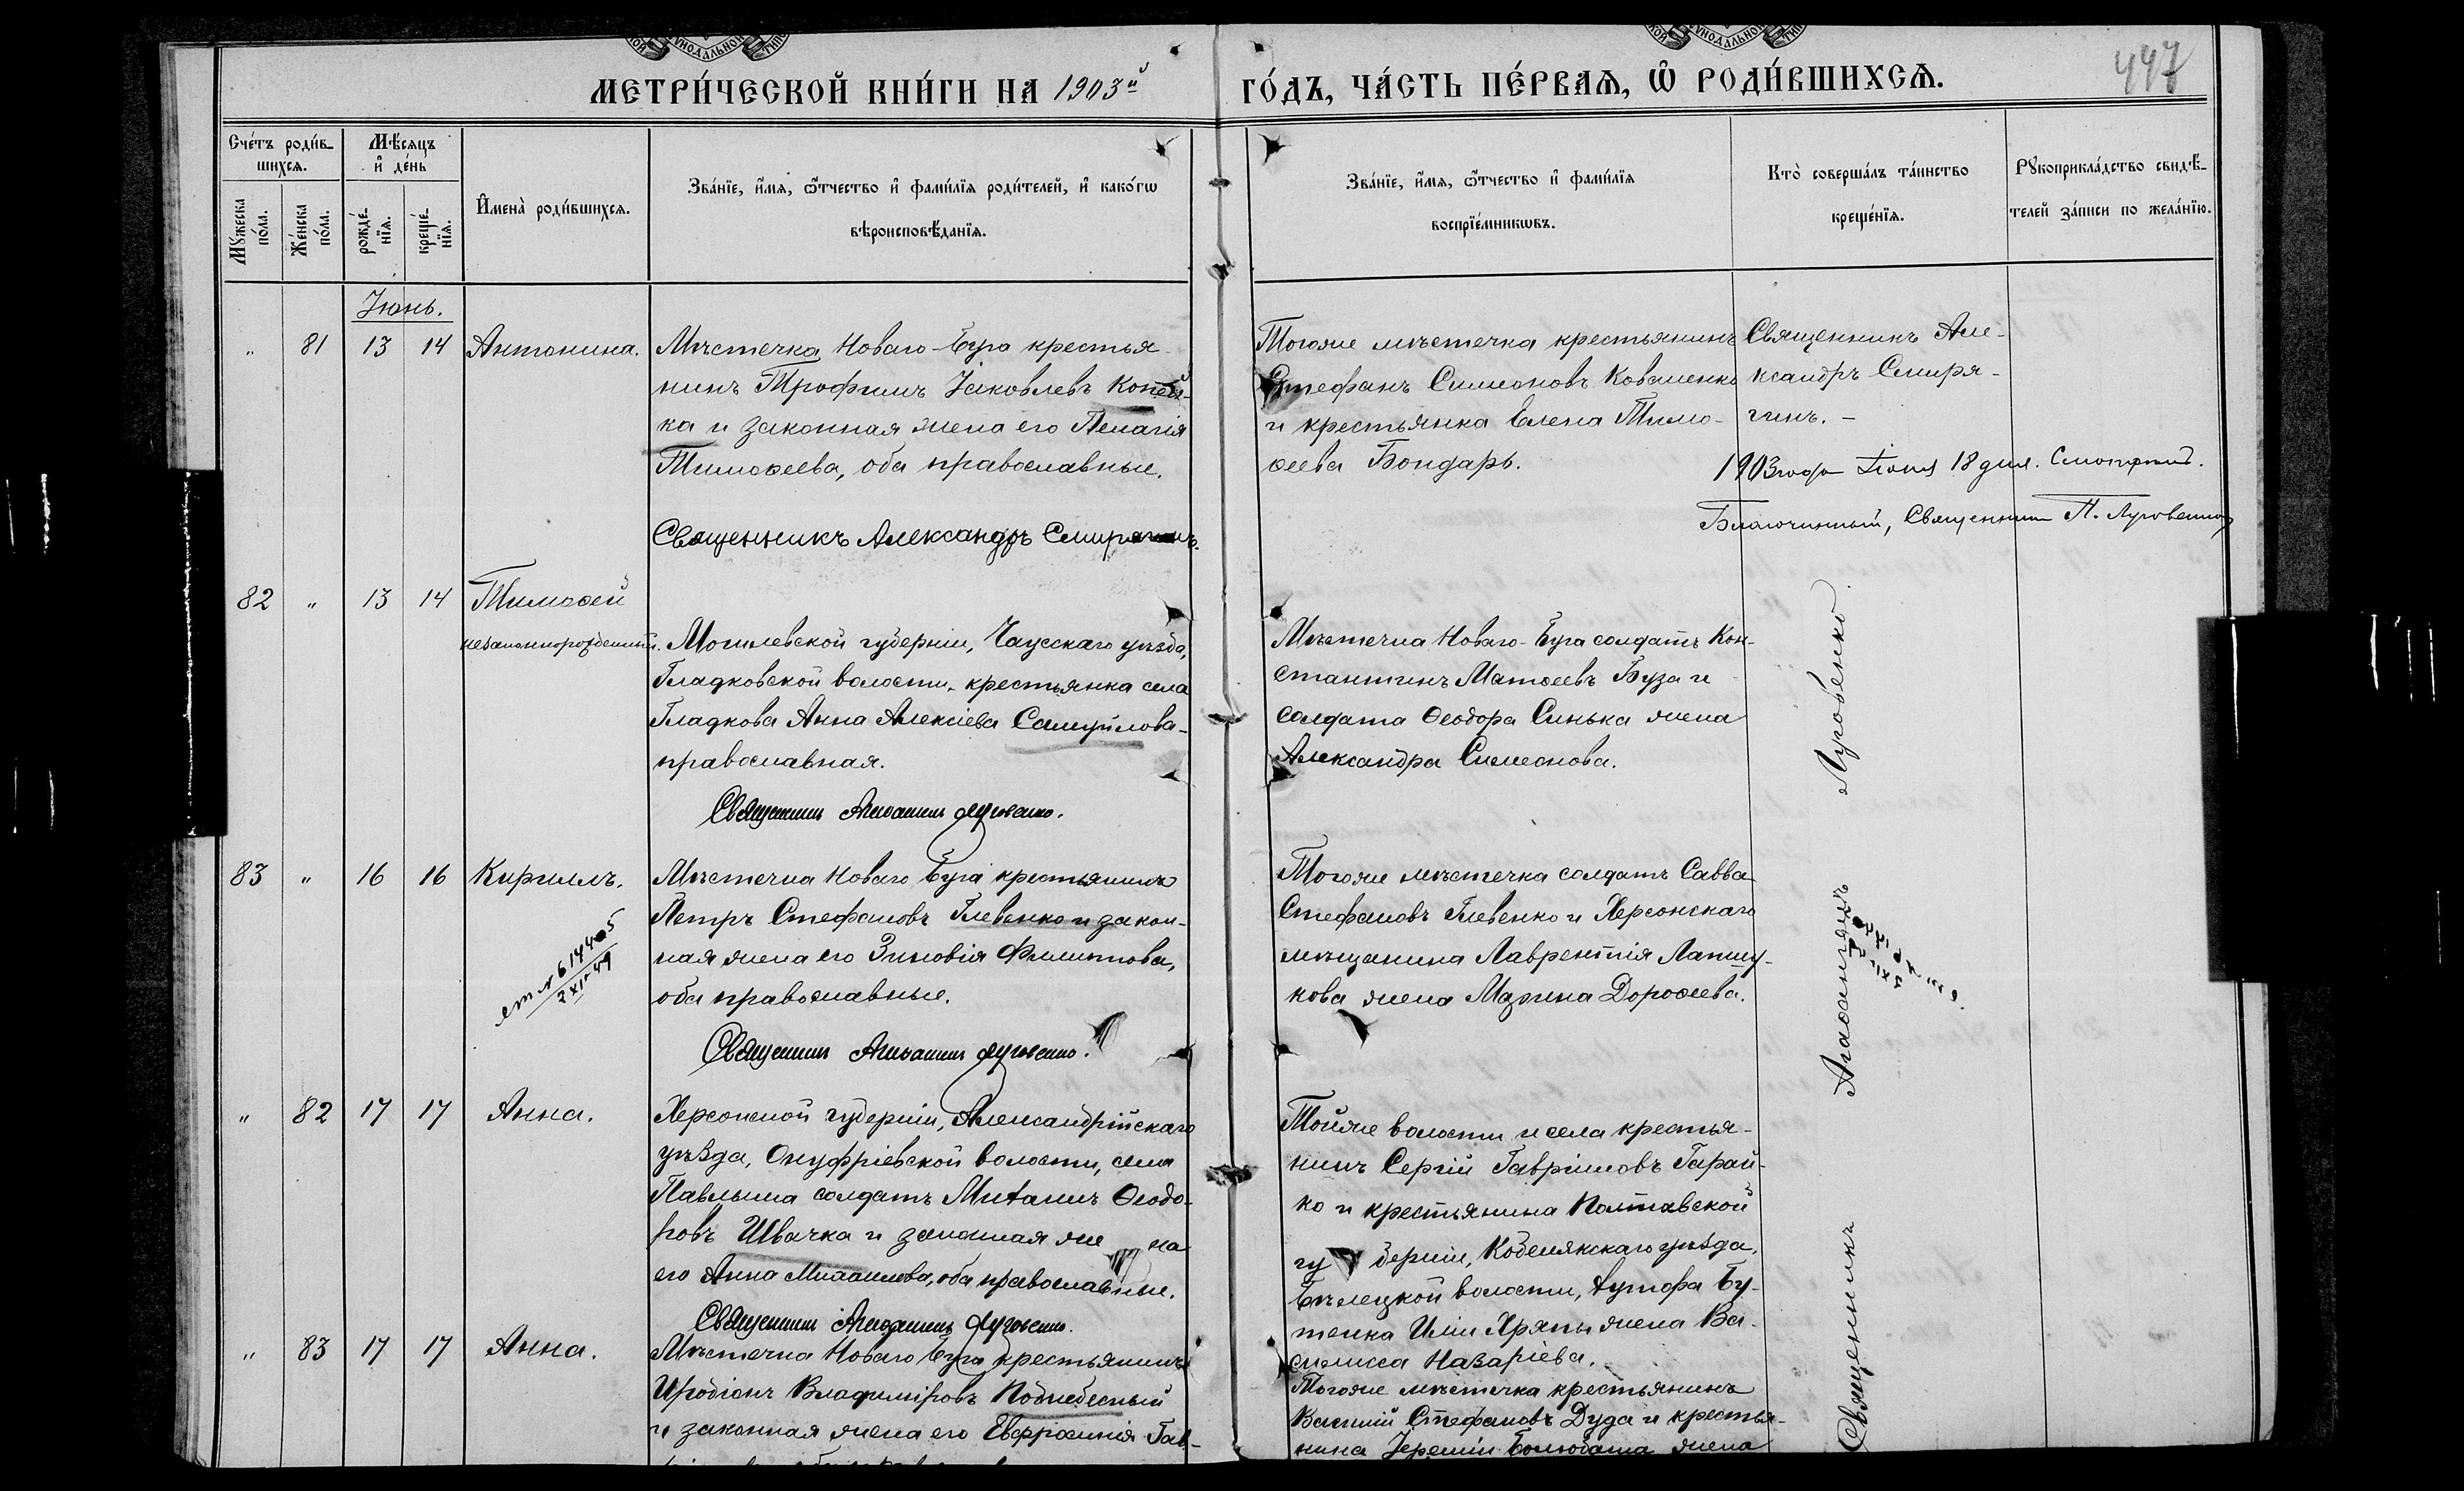 МЕТРИ́ЧЕСКОЙ КНИ́ГИ НА 1903й ГО́ДЪ, ЧА́СТЬ ПЕ́РВАЯ, Ѡ҆ РОДИ́ВШИХСЯ.
447
Сче́тъ роди́в-
шихся.
Мѣ́сяцъ
и҆ де́нь
Мꙋ́жеска
по́ла.
Же́нска
по́ла.
рожде́-
нїя.
креще́-
нїя.
И҆мена̀ роди́вшихся.
Зва́нїе, и҆́мя, ѻ҆́тчество и҆ фами́лїя роди́телей, и҆ како́гѡ
вѣроисповѣ́данїя.
Зва́нїе, и҆́мя, ѻ҆́тчество и҆ фами́лїя
воспрїе́мникѡвъ.
Кто̀ соверша́лъ та́инство
креще́нїя.
Рꙋкоприкла́дство свидѣ́-
телей за́писи по жела́нїю.
Іюнь.
" 81 13 14 Антонина.
Мѣстечка Новаго-Буга крестья-
нинъ Трофимъ Іаковлевъ Копей-
ка и законная жена его Пелагія
Тимоѳеева, оба православные.
Священникъ Александръ Смирягинъ.
Тогоже мѣстечка крестьянинъ
Стефанъ Симеоновъ Коваленко
и крестьянка Елена Тимо-
ѳеева Бондарь.
Священникъ Але-
ксандръ Смиря-
гинъ. -
1903 года Іюня 18 дня. Смотрѣлъ.
Благочинный, Священникъ
82 " 13 14 Тимоѳей
незаконнорожденный.
Могилевской губерніи, Чаусскаго уѣзда,
Гладковской волости, крестьянка села
Гладкова Анна Алексіева Самуйлова-
православная.
Священникъ Агаѳангелъ Луговенко.
Мѣстечка Новаго-Буга солдатъ Кон-
стантинъ Матѳеевъ Буза и
солдата Ѳеодора Синька жена
Александра Симеонова.
83 " 16 16 Кириллъ.
2 XI 49
Мѣстечка Новаго Буга крестьянинъ
Петръ Стефановъ Глевенко и закон-
ная жена его Зиновія Филиппова,
оба православные.
Священникъ Агаѳангелъ Луговенко.
Тогоже мѣстечка солдатъ Савва
Стефановъ Глевенко и Херсонскаго
мѣщанина Лаврентія Лапшу-
кова жена Марина Дороѳеева.
" 82 17 17 Анна.
Херсонской губерніи, Александрійскаго
уѣзда, Онуфріевской волости, села
Павлыша солдатъ Митанъ Ѳеодо-
ровъ Швачка и законная же на
его Анна Михаилова, оба православные.
Священникъ Агаѳангелъ Луговенко.
Тойже волости и села крестья-
нинъ Сергій Гавріиловъ Гарай-
ко и крестьянина Полтавской
гу берніи, Кобелякскаго уѣзда,
Бѣлецкой волости, хутора Бу-
тенка Иліи Хряпы жена Ва-
силисса Назаріева.
" 83 17 17 Анна.
Мѣстечка Новаго Буга крестьянинъ
Иродіонъ Владиміровъ Поднебесный
и законная жена его Евфросинія Гав-
Тогоже мѣстечка крестьянинъ
Василій Стефановъ Дуда и крестья-
нина Іереміи жена
Священникъ Агаѳангелъ Луговенко